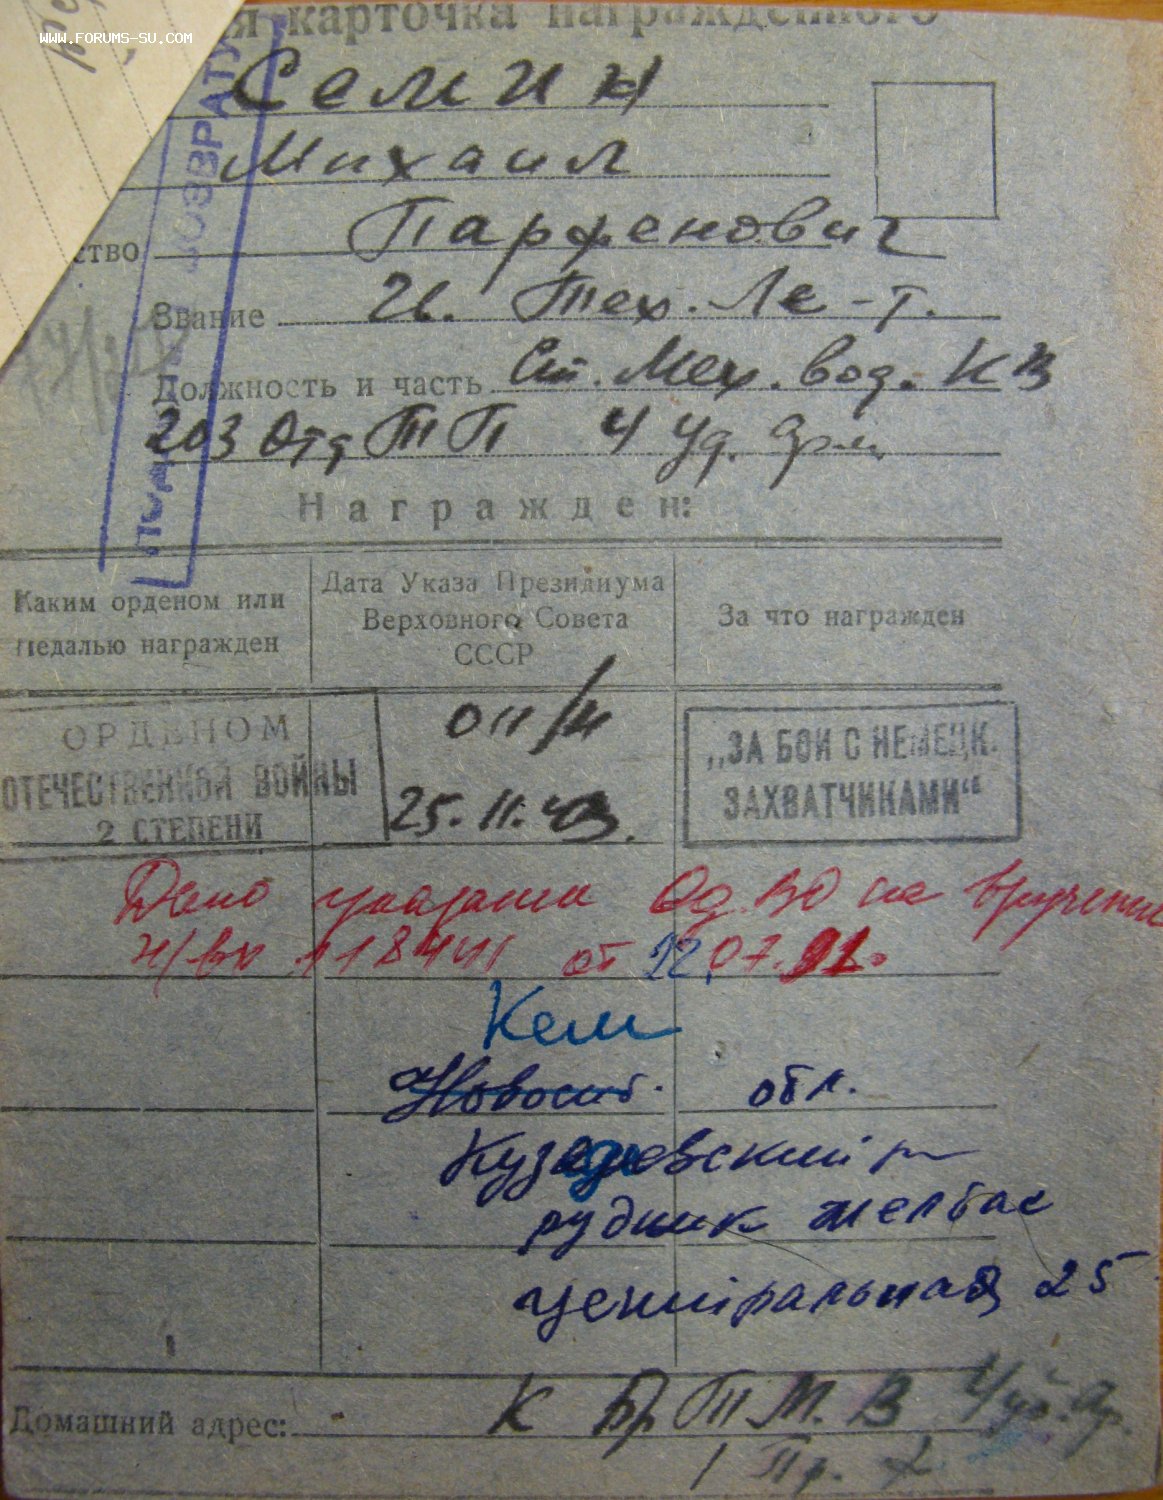 WWW.FORUMS-SU.COM
я карточка награжденного
Семин
Михаил
ство Парфенович
Звание Гв. Тех. Ле-т.
Должность и часть Ст. Мех. вод. КВ
203 отд ТП 4 Уд. Арм.
ВОЗВРАТУ
Награжден:
Каким орденом или медалью награжден
Дата Указа Президиума Верховного Совета СССР
За что награжден
ОРДЕНОМ
ОТЕЧЕСТВЕННОЙ ВОЙНЫ
2 СТЕПЕНИ
011/н
25.11.43.
„ЗА БОИ С НЕМЕЦК.
ЗАХВАТЧИКАМИ“
Дано указание Од ВО на вручение
от 12.07.91г
Кем
Новосиб. обл.
рудник
центральная 25
Домашний адрес: К Бр ТМ. В